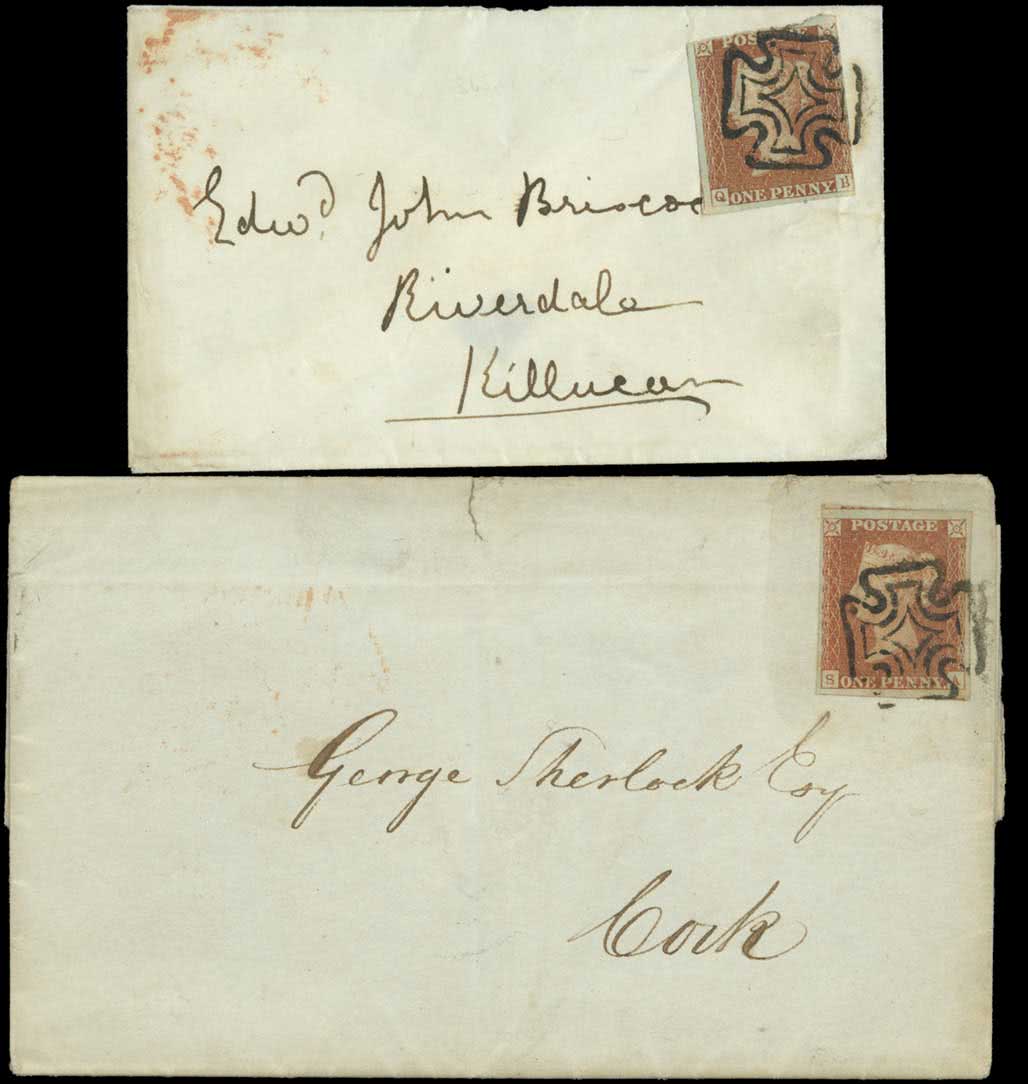 POSTAGE
Q ONE PENNY. H
Edwd. John Briscoe
Riverdale
Killucan
POSTAGE
S ONE PENNY. A
George Sherlock Esq
Cork